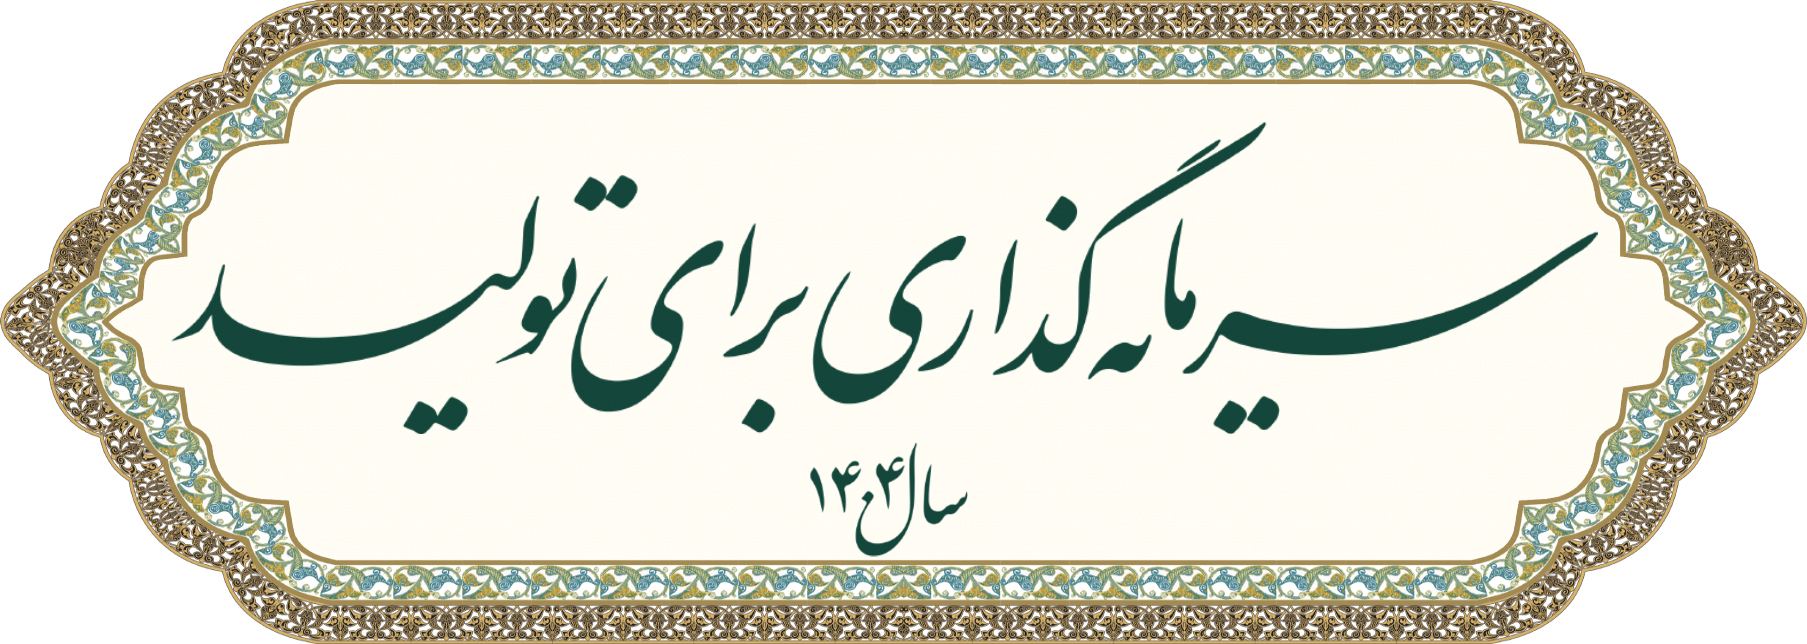 سرمایه‌گذاری برای تولید
سال ۱۴۰۴